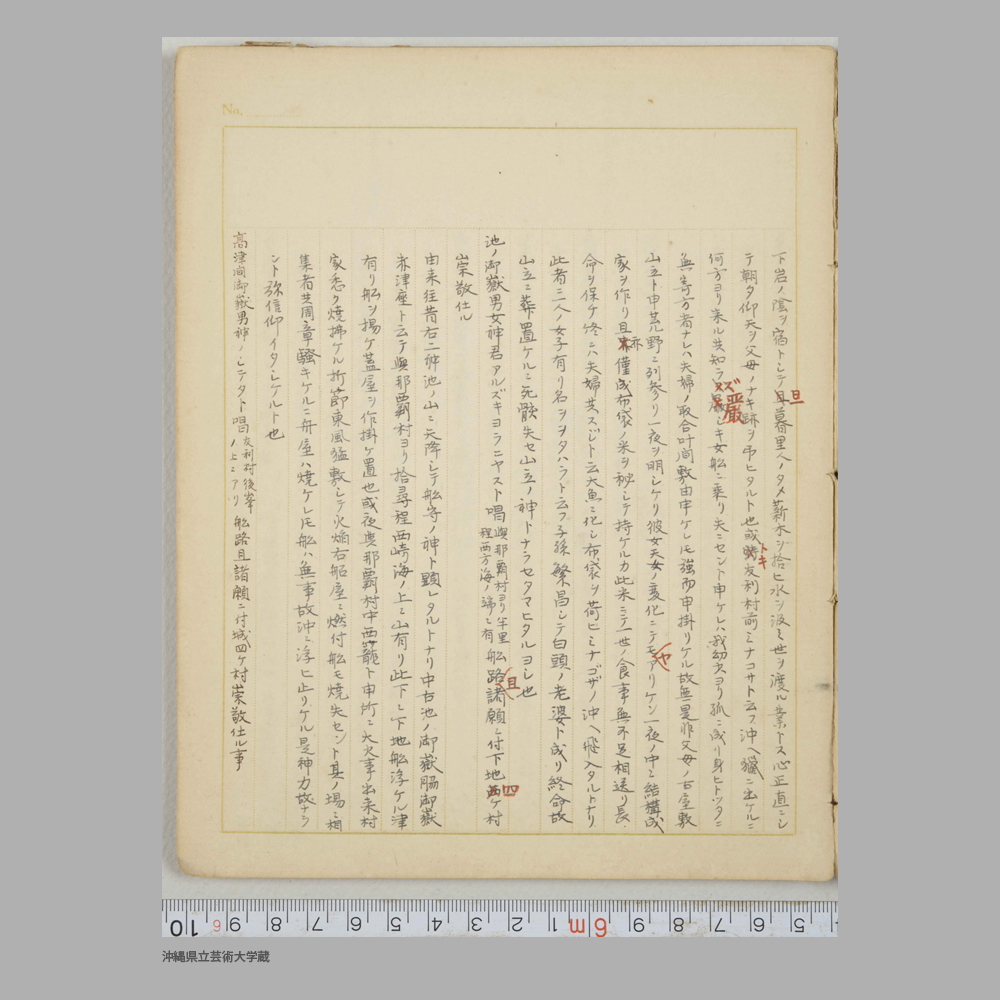 下岩ノ陰ヲ宿トシテ旦暮里人ノタメ薪木ヲ拾ヒ水ヲ汲ミ世ヲ渡ル業トス心正直ニシ
テ朝夕仰天ヲ父母ノナキ跡ヲ弔ヒタルト也或時友利村前ミナコサト云フ沖ヘ獵ニ出ケルニ
何方ヨリ来ル共知ラズ厳シキ女船ニ乗リ夫ニセント申ケレハ我幼少ヨリ孤ニ成リ身ヒトツタニ
無寄方者ナレハ夫婦ノ取合叶間敷由申ケレ𪜈強而申掛リケル故無是非父母ノ古屋敷
山立ト申荒野ニ列参リ一夜ヲ明シケリ彼女天女ノ変化ニテモヤアリケン一夜ノ中ニ結構成
家ヲ作リ且亦僅成布袋ノ米ヲ秘シテ持ケルカ此米ニテ一世ノ食事無不足相送リ長
命ヲ保ケ終ニハ夫婦共スビト云大魚ニ化シ布袋ヲ荷ヒミナゴザノ沖ヘ飛入タルトナリ
此者二人ノ女子有リ名ヲヲタハラト云フ子孫繁昌シテ白頭ノ老婆ト成リ終命故
山立ニ葬置ケルニ死骸失セ山立ノ神トナラセタマヒタルヨシ也
池ノ御嶽男女神君アルズキヨラニヤスト唱
與那覇村ヨリ午里
程西方海ノ端ニ有
船路且諸願ニ付下地四ケ村
崇敬仕ル
由来往昔右二神池ノ山ニ天降シテ船寄ノ神ト顕レタルトナリ中古池ノ御嶽脇御嶽
赤津座ト云テ與那覇村ヨリ拾尋程西崎海ノ上ニ山有リ此下ニ下地船浮ケル津
有リ船ヲ揚ケ蓋屋ヲ作掛ケ置也或夜與那覇村中西籠ト申所ニ大火事出来村
家悉ク焼拂ケル折節東風猛敷シテ火焔右船屋ニ燃付船モ焼失セント其ノ場ニ相
集者共周章騒キケルニ舟屋ハ焼ケレ𪜈船ハ無事故沖ニ浮ヒ止リケル是神力故ナラ
ント弥信仰イタシケルト也
高津間御嶽男神ノシテタト唱
友利村後峯
ノ上ニアリ
船路且諸願ニ付城四ケ村崇敬仕ル事
旦
ズ
厳
トキ
亦
ヤ
且
四
No.
沖縄県立芸術大学蔵